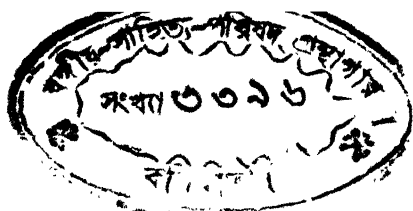 বঙ্গীয়-সাহিত্য-পরিষদ গ্রন্থাগার
সংখ্যা ৩৩৯৬